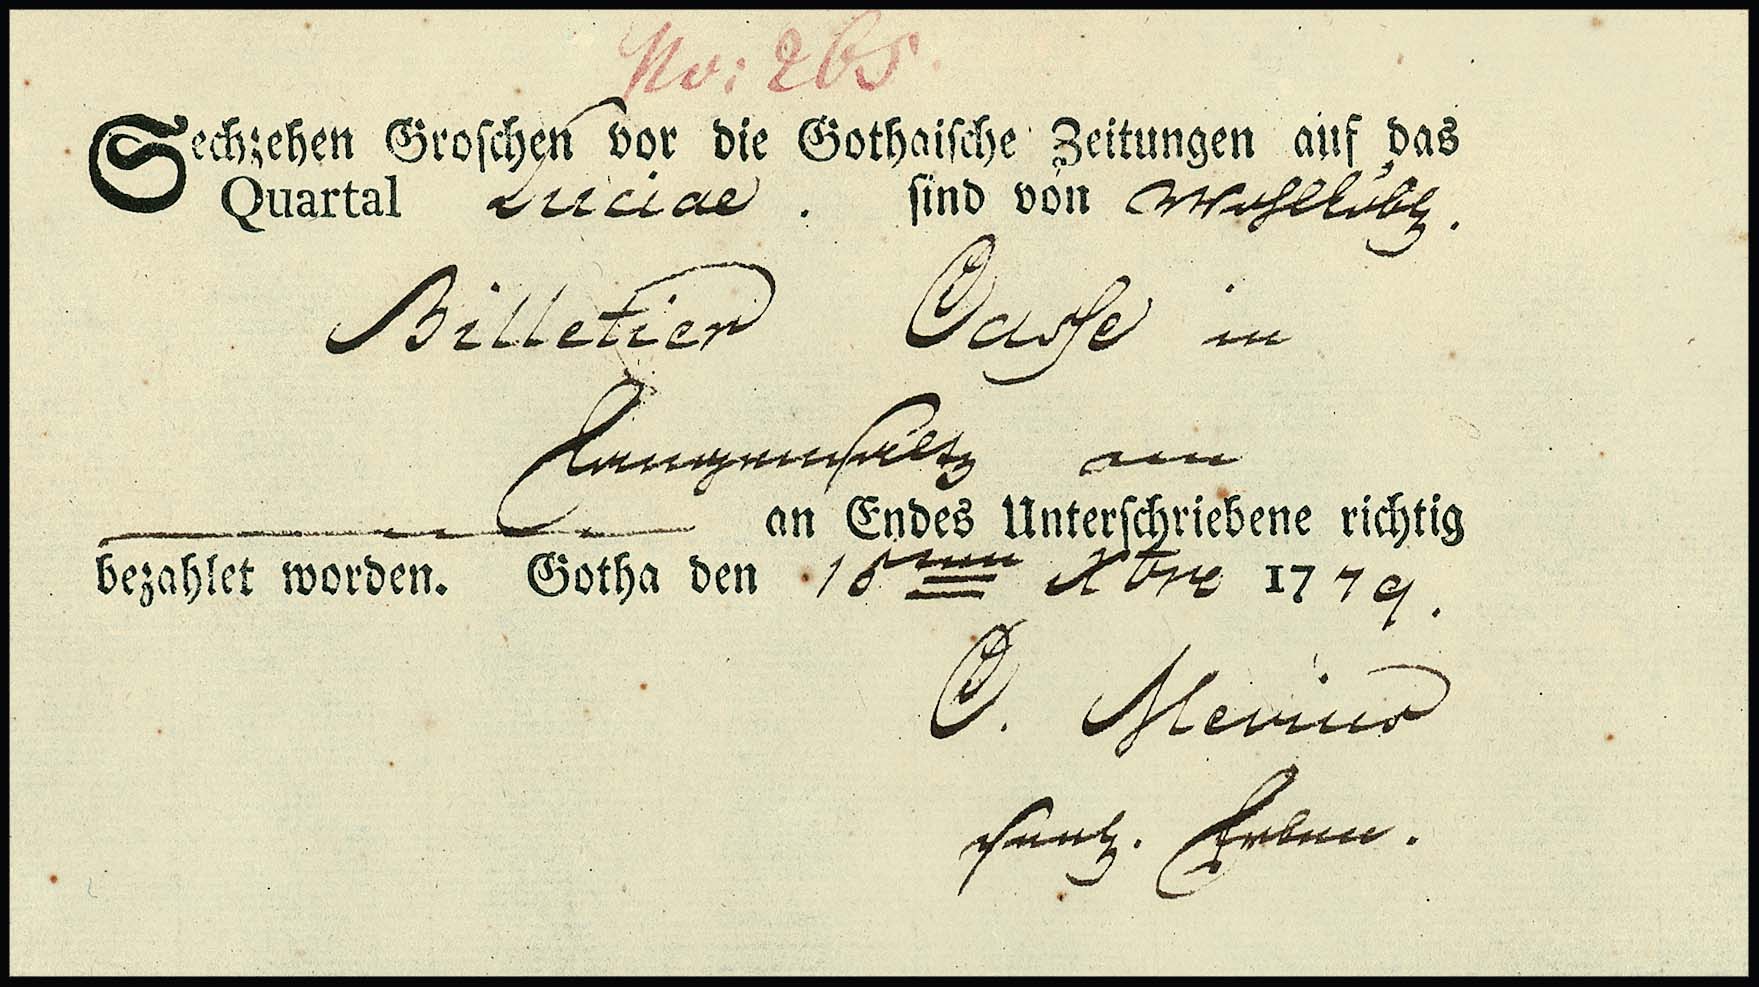 No: 265
Sechzehen Groschen vor die Gothaische Zeitungen auf das
Quartal Luciae. sind von Wohllöbl.
Billetier Casse in
Langensaltz
an Endes Unterschriebene richtig
bezahlet worden. Gotha den 16ten Xbre 1779.
C. Mevius
seel. Erben.